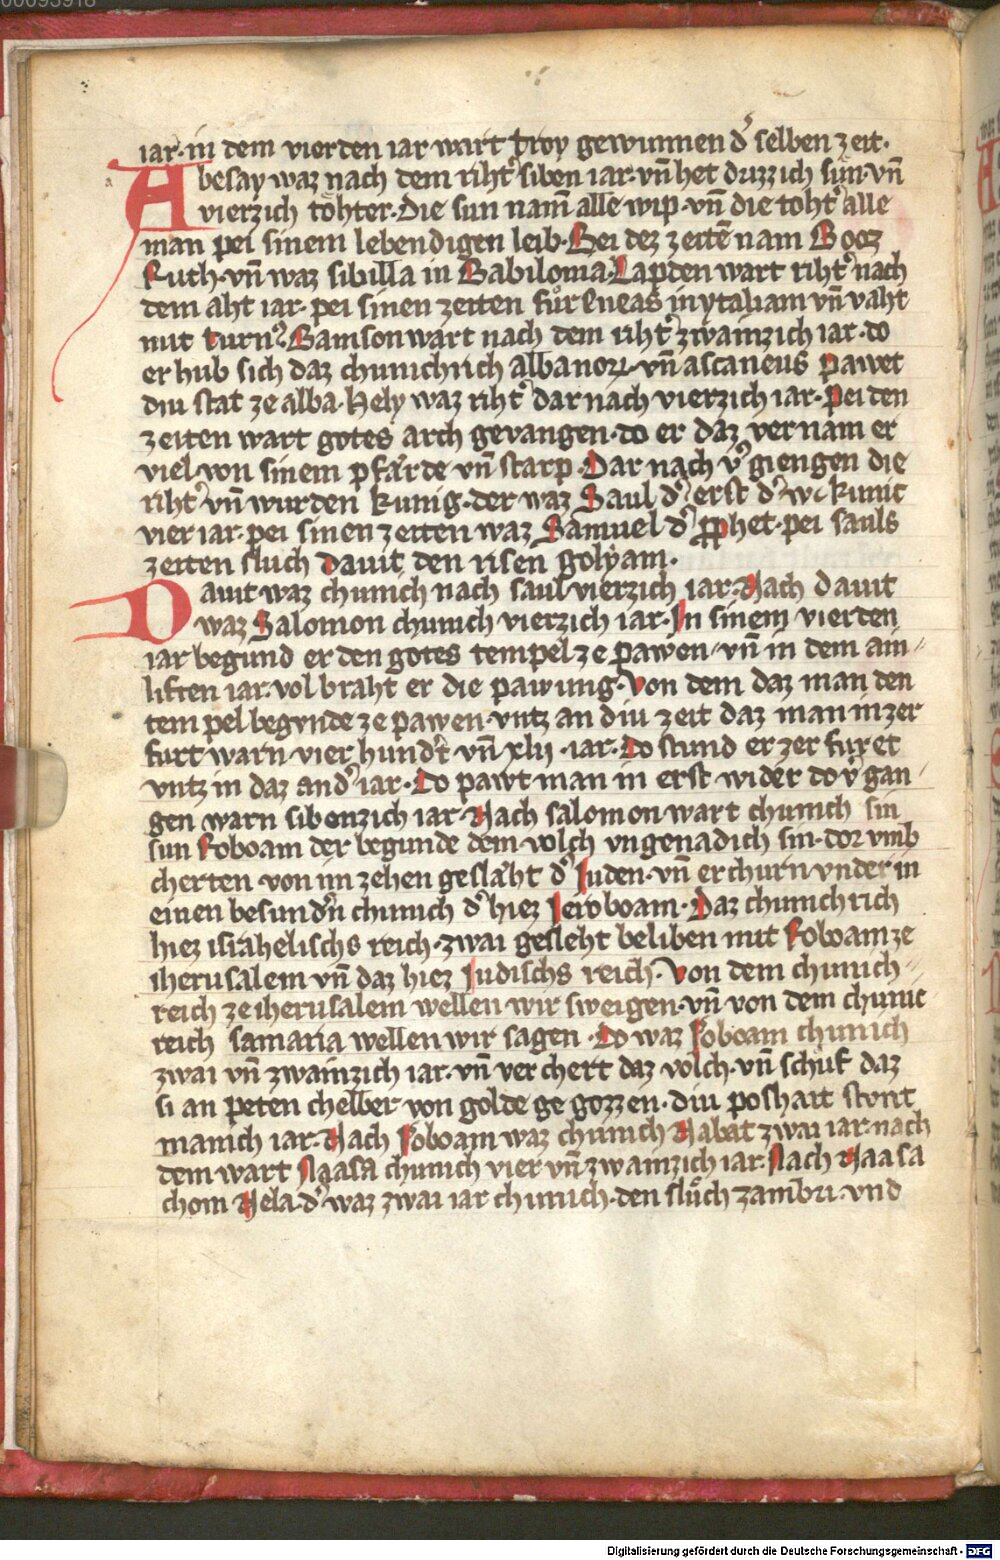 00093918
iar· in dem vierden iar wart troy gewunnen d͛ selben zeit·
Abesay waz nach dem riht͛ siben iar· vn̄ het drizzich sůn· vn̄
vierzich töhter· Die sun nam̄ alle wip· vn̄ die toht͛ alle
man pei sinem lebendigen leib· Bei dez zeitē nam Booz
Ruth· vn̄ waz sibilla in Babilonia· Lapden wart riht͛ nach
dem aht iar· pei sinen zeiten fůr Eneas in ytaliam vn̄ vaht
mit turn͛· Samson wart nach dem riht͛ zwainzich iar· do
er hub sich daz chunichrich albanoꝝ· vn̄ ascaneus pawet
diu stat ze alba· Hely waz riht͛ dar nach vierzich iar· Pei den
zeiten wart gotes arch gevangen· do er daz vernam er
viel von sinem pfärde vn̄ starp· Dar nach v͛giengen die
riht͛ vn̄ wurden kunig· der waz Saul d͛ erst d͛ w kunic
vier iar· pei sinen zeiten waz Samuel d͛ ꝓphet· pei sauls
zeiten sluch Dauit den risen golyam·
Dauit waz chunich nach saul vierzich iar· Nach dauit
waz Salomon chunich vierzich iar· In sinem vierden
iar begund er den gotes tempel ze pawen· vn̄ in dem ain⸗
liften iar vol braht er die pawung· Von dem daz man den
tempel begvnde ze pawen· vntz an diu zeit daz man in zer
furt warn vier hund͛t vn̄ xlij · iar· Do stund er zer furet
vntz in daz and͛ iar· Do pawt man in erst wider do v͛gan⸗
gen warn sibenzich iar· Nach salomon wart chunich sin
sun Roboam der begunde dem volch vngenadich sin· dor vmb
cherten von im zehen geslåht d͛ Juden· vn̄ erchurn vnder in
einen besund͛n chunich d͛ hiez Jeroboam· Daz chunichrich
hiez israhelischs reich· zwai gesleht beliben mit Roboam ze
iherusalem vn̄ daz hiez Judischs reich· Von dem chunich⸗
reich ze iherusalem wellen wir sweigen· vn̄ von dem chunic
reich samaria wellen wir sagen· Do waz Joboam chunich
zwai vn̄ zwainzich iar· vn̄ verchert daz volch· vn̄ schůf daz
si an peten chelber von golde gegozzen· diu poshait stont
manich iar· Nach Joboam waz chunich Nabat zwai iar nach
dem wart Naasa chunich vier vn̄ zwainzich iar· Nach Naasa
chom Nela· d͛ waz zwai iar chunich· den slůch zambri· vnd
Digitalisierung gefördert durch die Deutsche Forschungsgemeinschaft - DFG